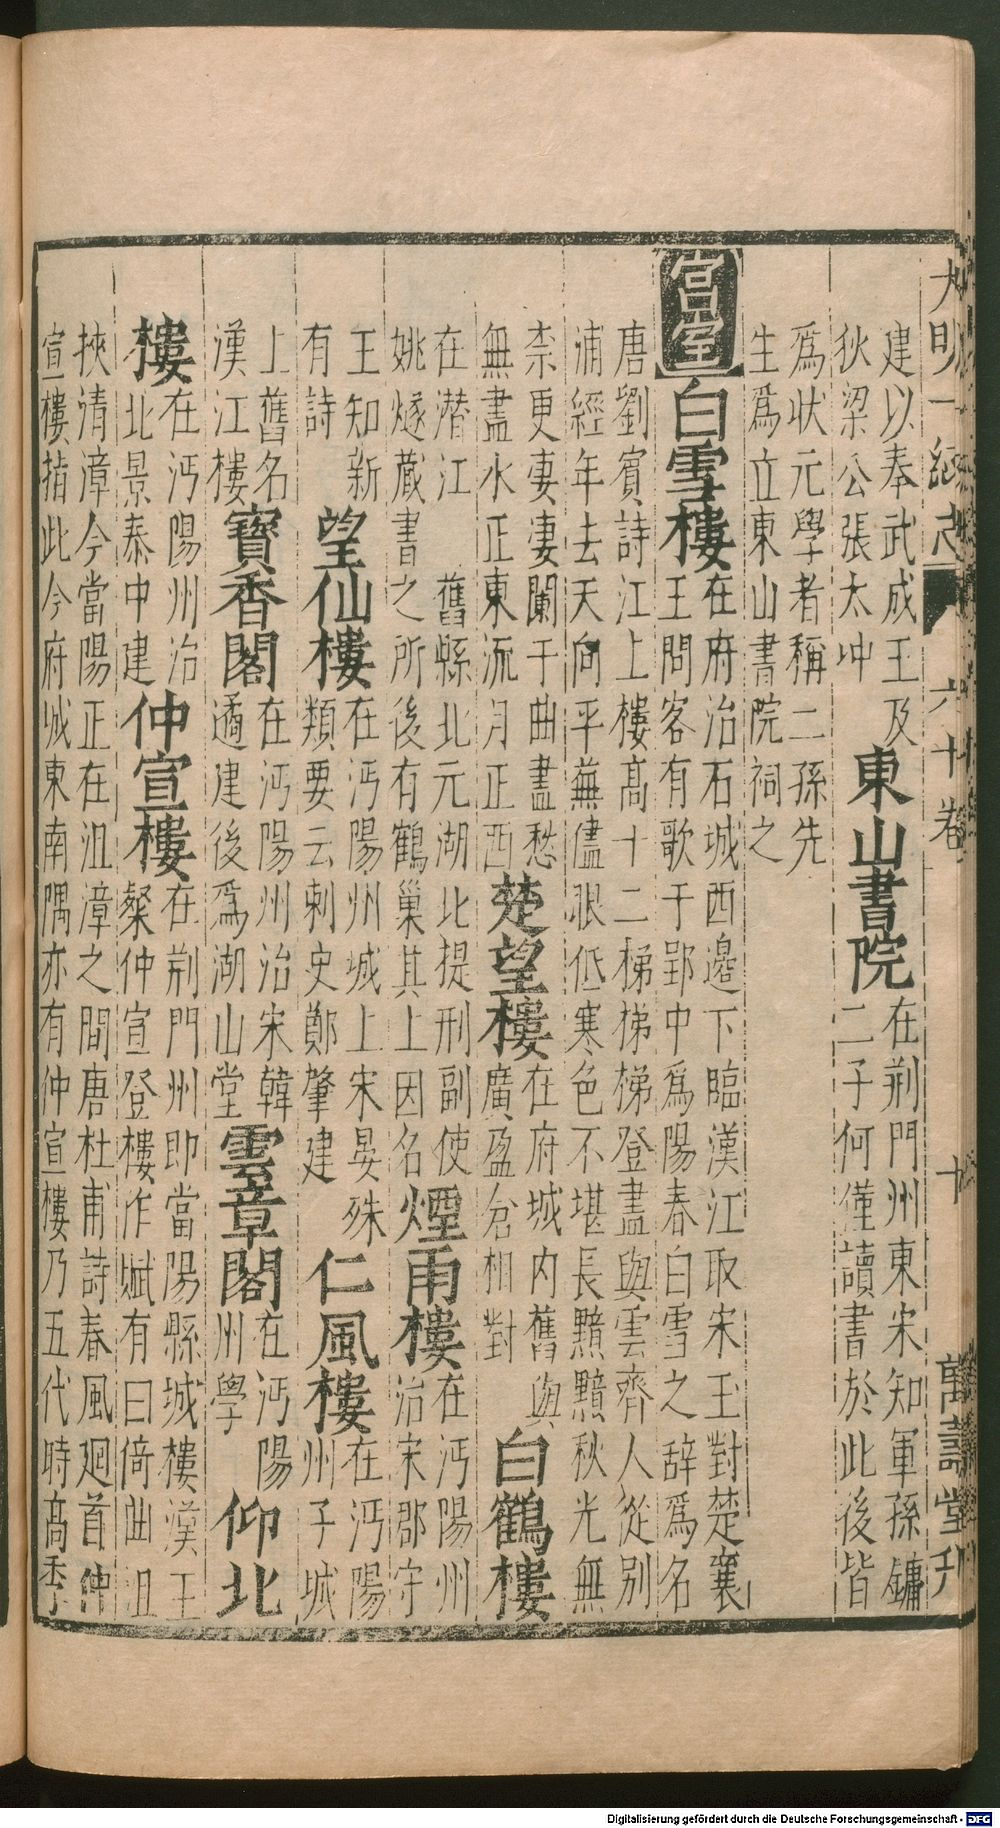 大明一統志 六十卷 十 萬壽堂刋
建以奉武成王及
狄梁公張太冲
東山書院
在荆門州東宋知軍孫鏞
二子何僅讀書於此後皆
爲狀元學者稱二孫先
生爲立東山書院祠之
宫室
白雪樓
在府治石城西邉下臨漢江取宋玉對楚襄
王問客有歌于郢中爲陽春白雪之辭爲名
唐劉賓詩江上樓髙十二梯梯梯登盡與雲齊人從别
浦經年去天向平蕪儘眼低寒色不堪長黯黯秋光無
柰更凄凄闌干曲盡愁
無盡水正東流月正西
楚望樓
在府城内舊與
廣盈倉相對
白鶴樓
在潜江
舊縣北元湖北提刑副使
姚燧蔵書之所後有鶴巢其上因名
煙雨樓
在沔陽州
治宋郡守
王知新
有詩
望仙樓
在沔陽州城上宋晏殊
類要云刺史鄭肇建
仁風樓
在沔陽
州子城
上舊名
漢江樓
寶香閣
在沔陽州治宋韓
遹建後爲湖山堂
雲章閣
在沔陽
州學
仰北
樓
在沔陽州治
北景泰中建
仲宣樓
在荆門州即當陽縣城樓漢王
粲仲宣登樓作賦有曰倚曲沮
挾清漳今當陽正在沮漳之間唐杜甫詩春風廻首仲
宣樓指此今府城東南隅亦有仲宣樓乃五代時髙季
Digitalisierung gefördert durch die Deutsche Forschungsgemeinschaft - DFG